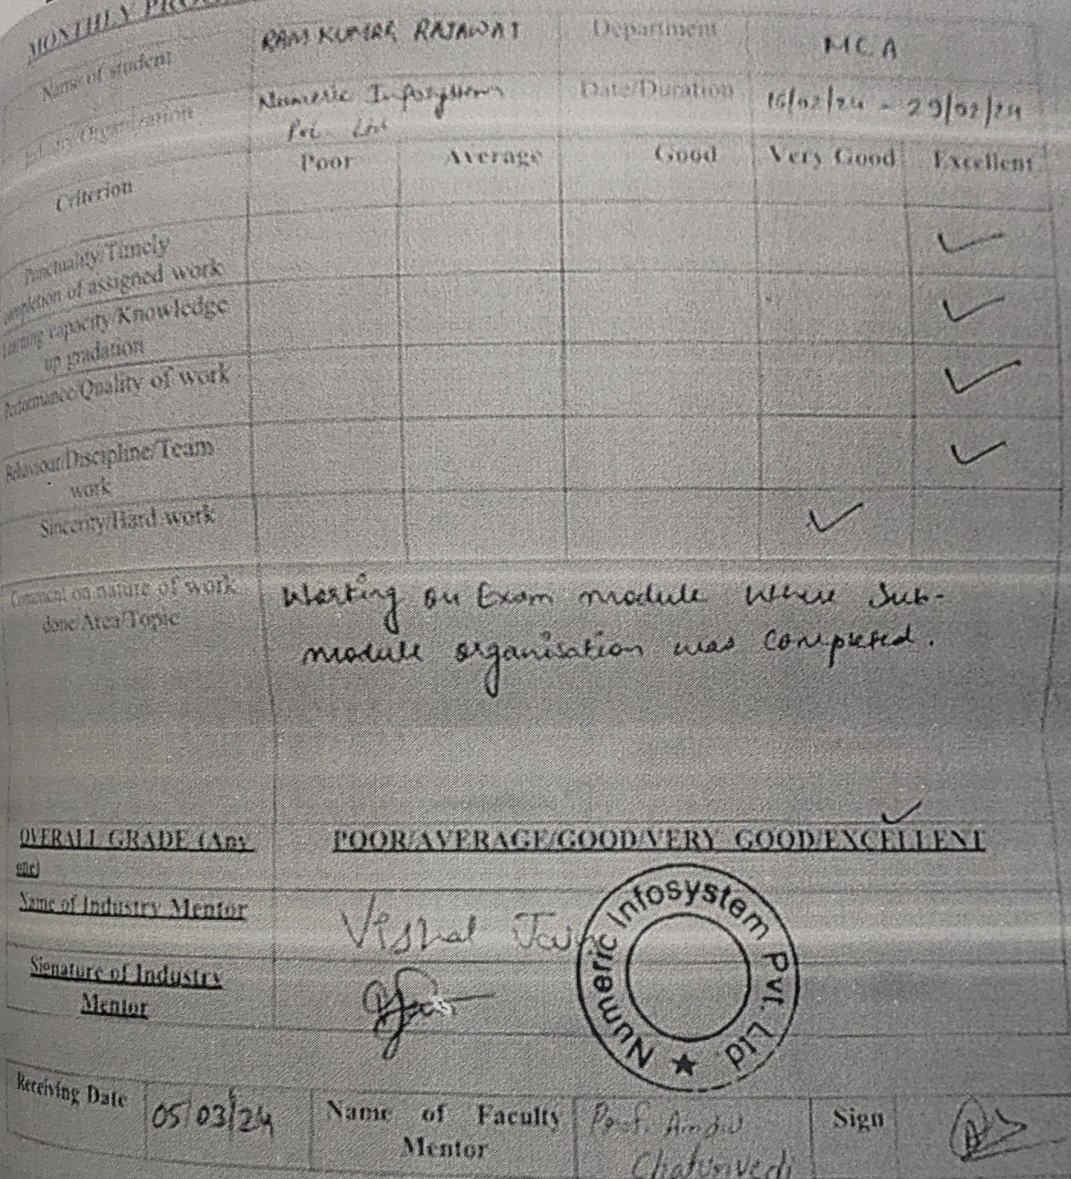 MONTHLY
Name of student RAM KUMAR RAJAWAT Department MCA
Organization Numeric Infosystem Date/Duration 16/02/24 - 29/02/24
Pvt. Ltd
Criterion Poor Average Good Very Good Excellent
Punctuality/Timely ✓
completion of assigned work
Learning capacity/Knowledge ✓
up gradation
Performance/Quality of work ✓
Behaviour/Discipline/Team ✓
work
Sincerity/Hard work ✓
Comment on nature of work Working on Exam module where Sub-
done/Area/Topic module organisation was completed.
OVERALL GRADE (Any POOR/AVERAGE/GOOD/VERY GOOD/EXCELLENT ✓
one)
Name of Industry Mentor Vishal Jain
Signature of Industry
Mentor
Numeric Infosystem Pvt. Ltd ★
Receiving Date 05/03/24 Name of Faculty Prof. Sign
Mentor Chaturvedi